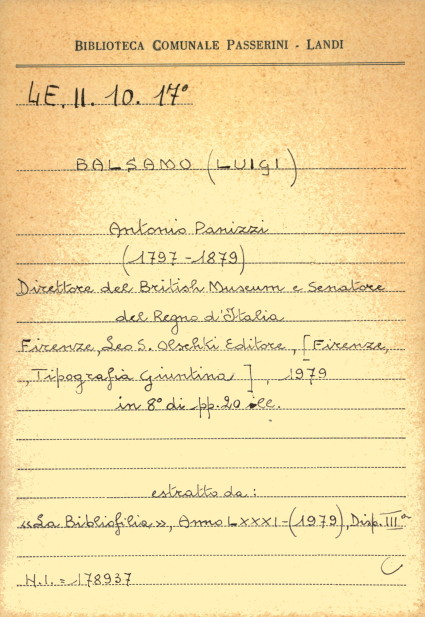 BIBLIOTECA COMUNALE PASSERINI - LANDI
4E. II. 10. 17°
BALSAMO (LUIGI)
Antonio Panizzi
(1797-1879)
Direttore del British Museum e Senatore
del Regno d'Italia
Firenze, Leo S. Olschki Editore, [Firenze,
, Tipografia Giuntina ], 1979
in 8° di pp. 20 ill.
estratto da:
«La Bibliofilia», Anno LXXXI-(1979), Disp. IIIª
N.I. = 178937